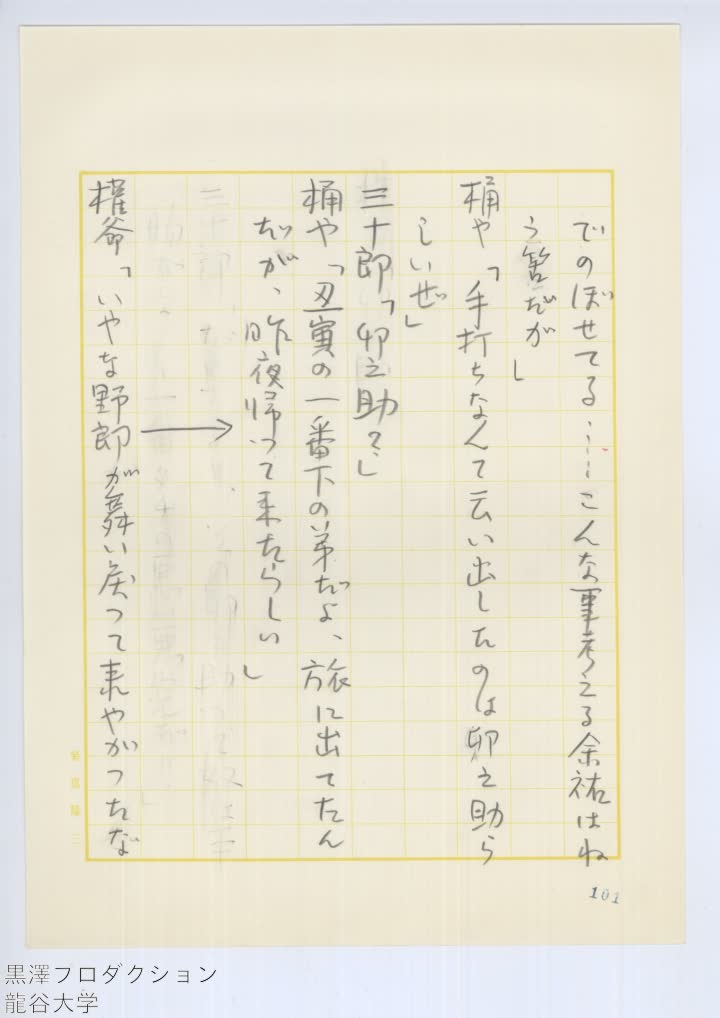 でのぼせてる……こんな事考える余祐はね
う筈だが」
桶や「手打ちなんて云い出したのは卯之助ら
しいぜ」
三十郎「卯之助?」
桶や「丑寅の一番下の弟だよ、旅に出てたん
だが、昨夜帰って来たらしい」
権爺「いやな野郎が舞い戻って来やがったな
101
黒澤プロダクション
龍谷大学